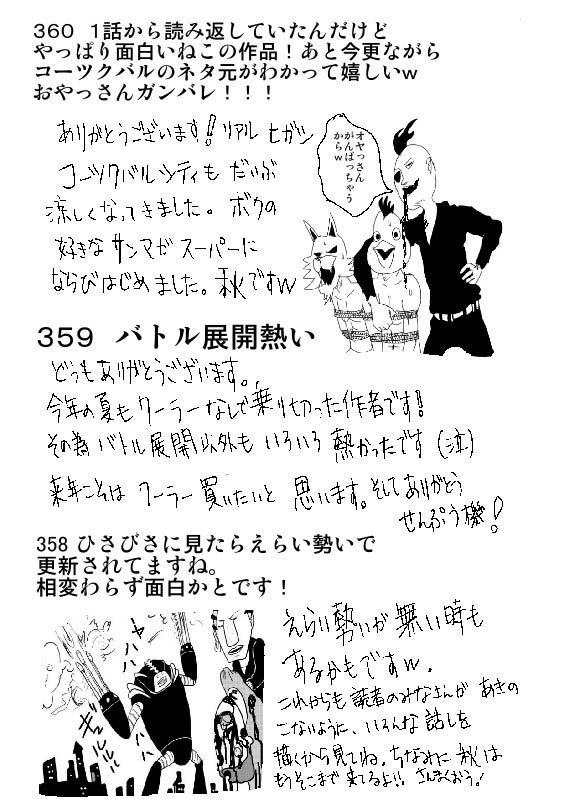 360 1話から読み返していたんだけど
やっぱり面白いねこの作品！あと今更ながら
コーツクバルのネタ元がわかって嬉しいw
おやっさんガンバレ！！！
ありがとうございます！リアル ヒガシ
コーツクバルシティも だいぶ
涼しくなってきました。ボクの
好きなサンマが スーパーに
ならびはじめました。秋ですW
オヤっさん
がんばっちゃう
からw
359 バトル展開熱い
どうもありがとうございます。
今年の夏もクーラーなしで乗り切った作者です!!
その為 バトル展開以外も いろいろ 熱かったです（泣）
来年こそは クーラー買いたいと 思います。そしてありがとう
せんぷう機！
358 ひさびさに見たらえらい勢いで
更新されてますね。
相変わらず面白かとです！
ヤハハハ
ギュルルル
えらい勢いが 無い時も
あるかもですw.
これからも 読者のみなさんが あきの
こないように、いろんな 話しを
描くから見てね。ちなみに 秋は
もうそこまで 来てるよ!! さんまくおう！